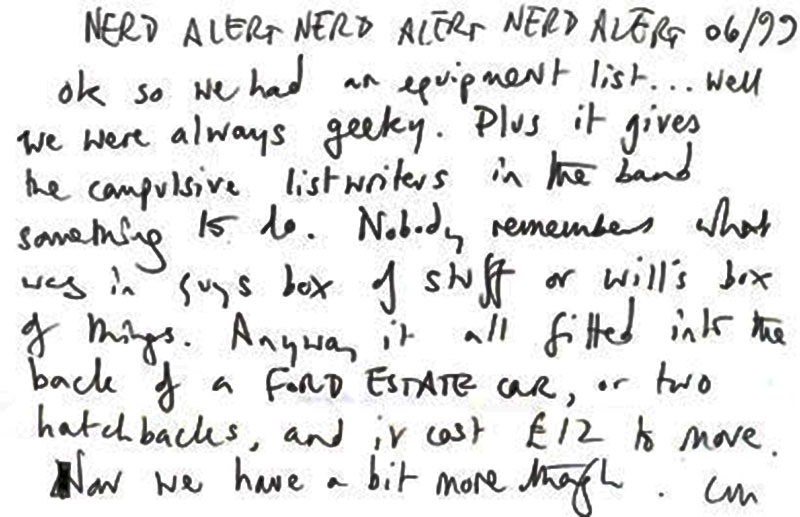 NERD ALERT NERD ALERT NERD ALERT 06/99
ok so we had an equipment list... well
we were always geeky. Plus it gives
the compulsive listwriters in the band
something to do. Nobody remembers what
was in guys box of stuff or will's box
of things. Anyway it all fitted into the
back of a FORD ESTATE car, or two
hatchbacks, and it cost £12 to move.
Now we have a bit more though.